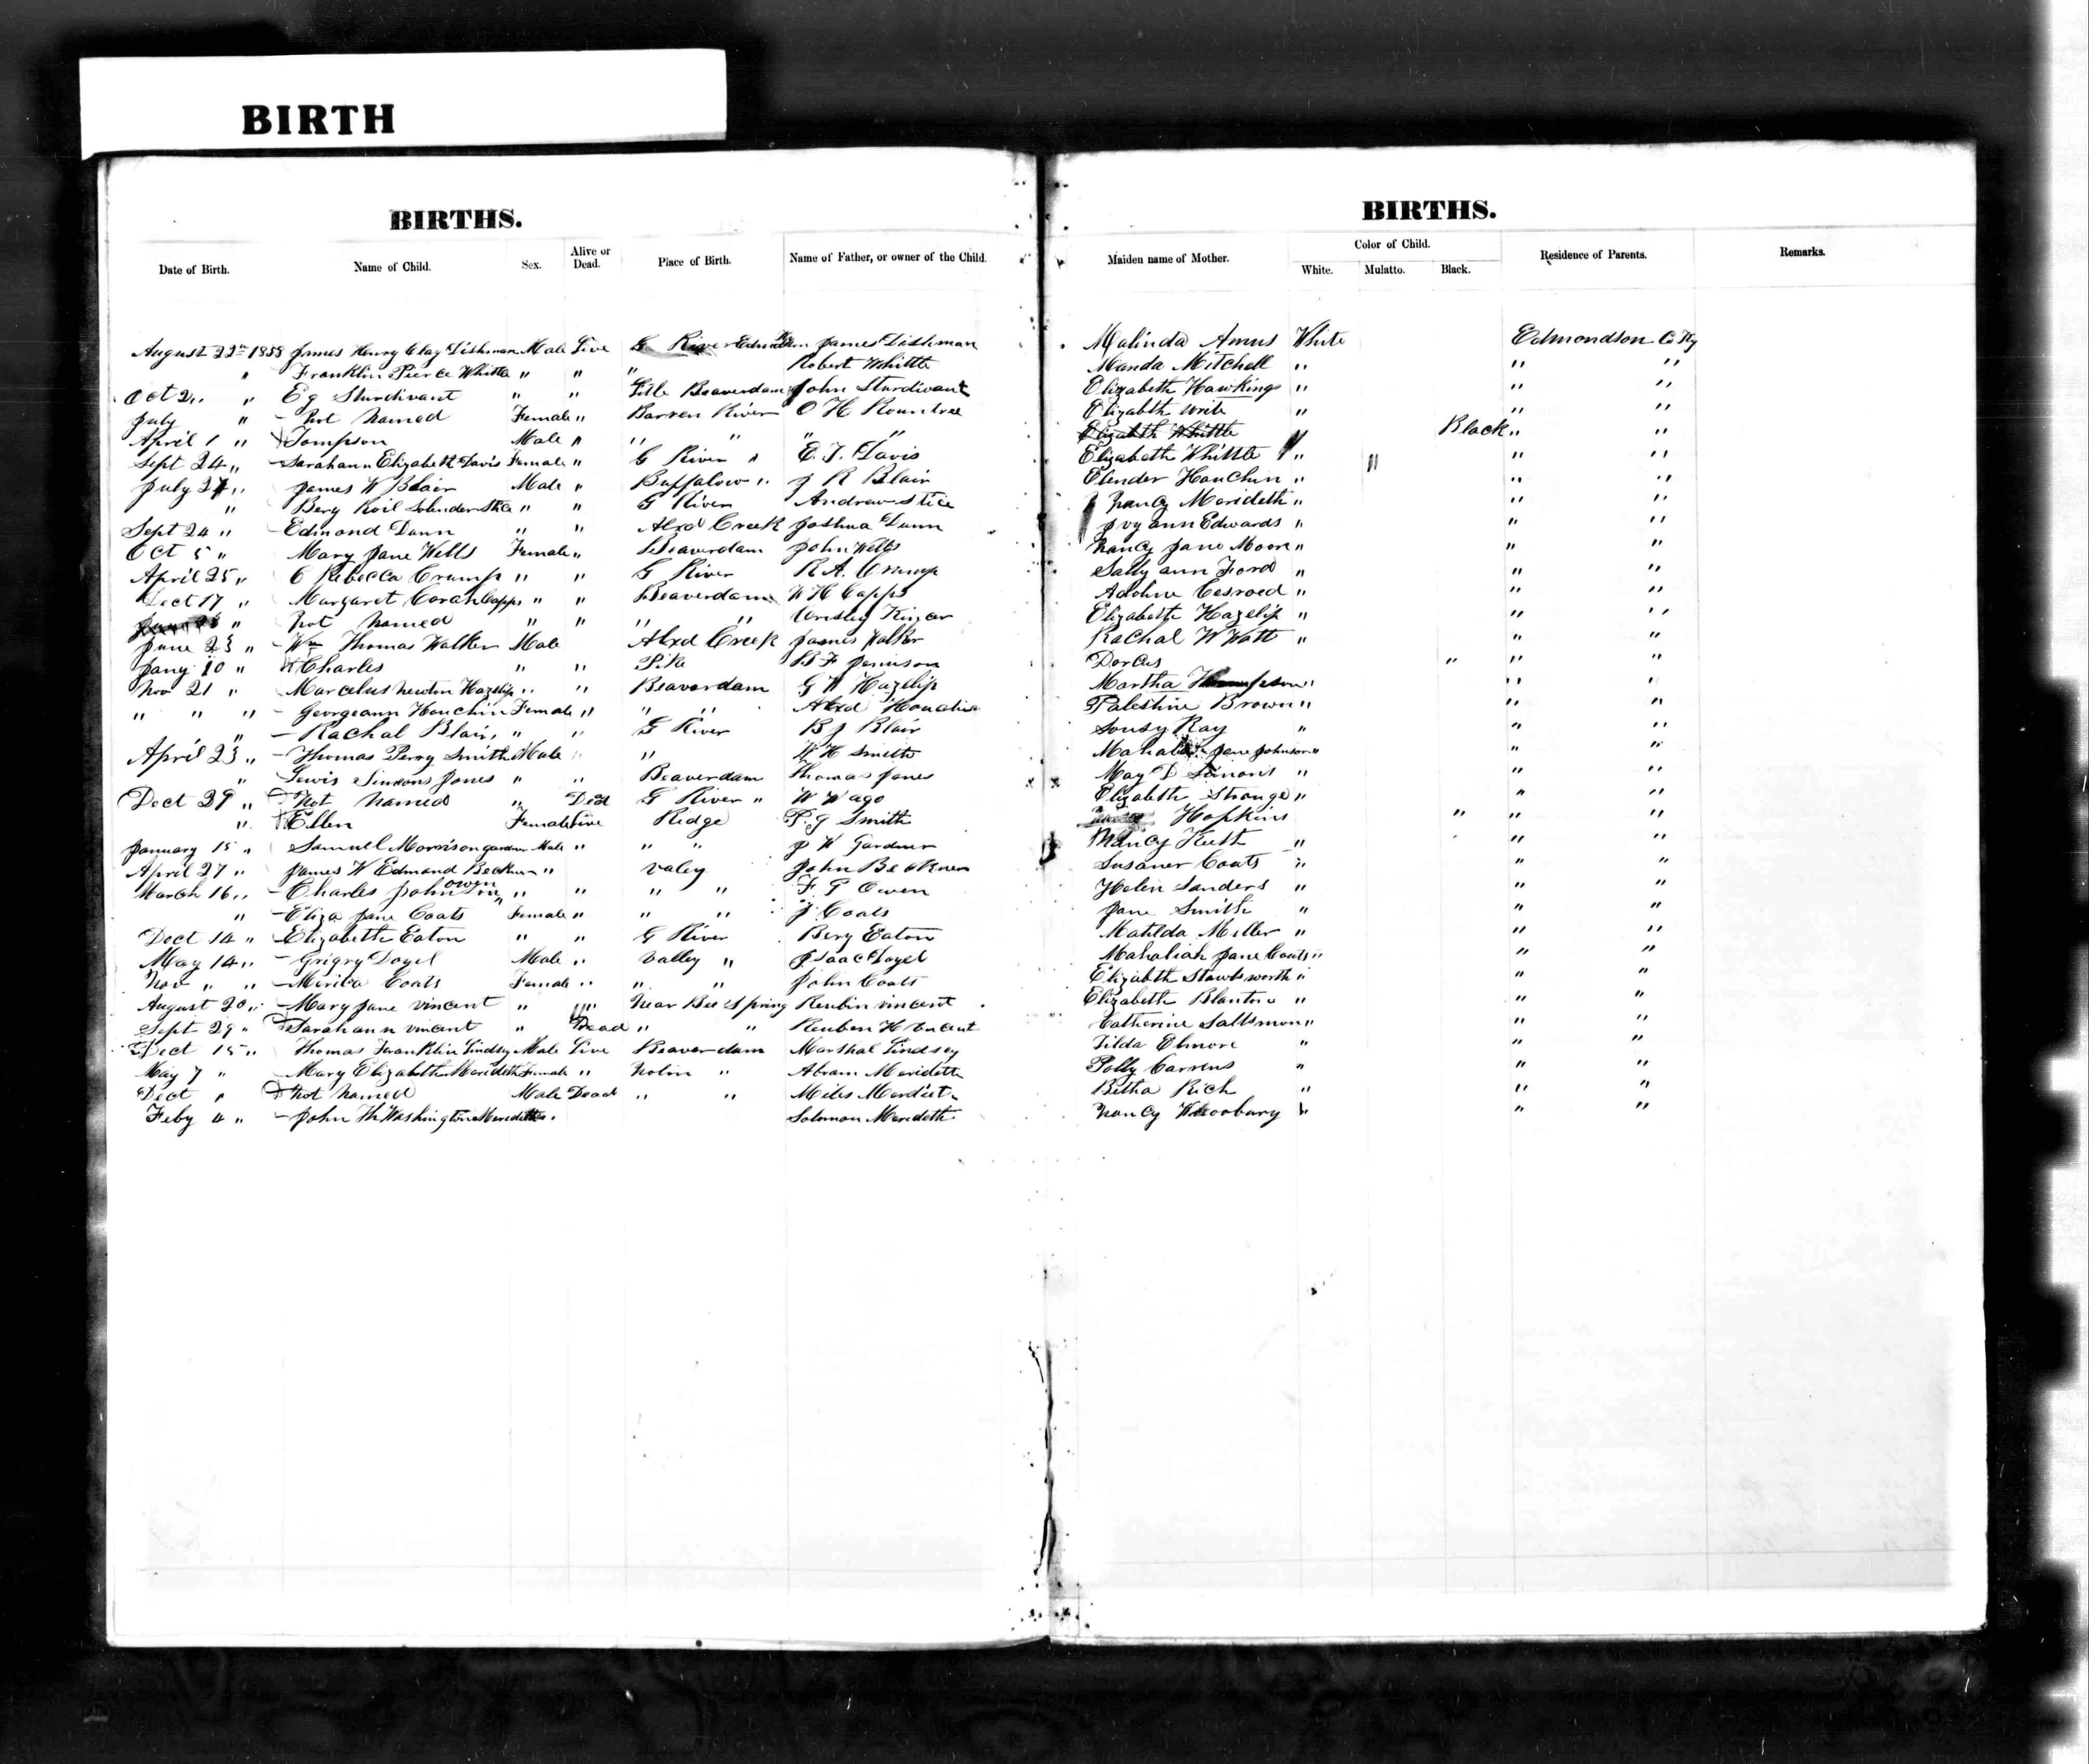 BIRTH
BIRTHS.
Date of Birth. Name of Child. Sex. Alive or Dead. Place of Birth. Name of Father, or owner of the Child.
August 22n 1858 James Henry Clay Dishman Male Live G River James Dishman
" Franklin Pierce Whittle " " " Robert Whittle
Oct 2 " " Eg Sturdivant " " Little Beaverdam John Sturdivant
July " Not Named Female " Barren River O H Rountree
April 1 " Tompson Male " " " "
Sept 24 " Sarahann Elizabeth Davis Female " G River " E. T. Davis
July 27 " James W Blair Male " Buffalow " J R Blair
" Bery " " G River Andrew Stice
Sept 24 " Edmond Dunn " " Alxd Creek Joshua Dunn
Oct 5 " Mary Jane Wells Female " Beaverdam John Wells
April 25 " C Rebecca Crump " " G River R. A. Crump
Dect 17 " Margaret Corah Capps " " Beaverdam W H Capps
" Not Named " " " " Kinser
June 23 " Wm Thomas Walker Male Alxd Creek James Walker
Jany 10 " Charles " " Pike B F Jenuson
Nov 21 " Marcelus Newton Hazelip " " Beaverdam G W Hazelip
" " " Georgeann Houchin Female " " " Alxd Houchin
" Rachal Blair " " G River B J Blair
April 23 " Thomas Perry Smith Male " " W H Smith
" Lewis Simons Jones " " Beaverdam Thomas Jones
Dect 29 " Not Named " Died G River " W W ago
" Ellen Female Live Ridge P. G Smith
January 15 " Samuel Morrison Gardner Male " " " J W Gardner
April 27 " James W Edmond Beckner " Valey John Beckner
March 16 " Charles John Owen " " " " F G Owen
" Eliza Jane Coats Female " " " J Coats
Dect 14 " Elizabeth Eaton " " G River Bery Eaton
May 14 " Grigry Dogel Male " Valley " Isaac Dogel
Nov " " Merica Coats Female " " " John Coats
August 20 " Mary Jane Vincent " " Near Bee Spring Reubin Vincent
Sept 29 " Sarahann Vincent " Dead " " Reuben H Vincent
Dect 15 " Thomas Franklin Lindsey Male Live Beaverdam Marshal Lindsey
May 7 " Mary Elizabeth Merideth Female " Nolin " Abram Merideth
Dect " Not Named Male Dead " " Miles
Feby 4 " John Th Washington Merideth " Solomon Merideth
BIRTHS.
Maiden name of Mother. Color of Child. White. Mulatto. Black. Residence of Parents. Remarks.
Malinda Amus White Edmondson Co Ky
Manda Mitchell " " "
Elizabeth Hawkings " " "
Elizabeth Write " " "
Elizabeth Whittle Black " "
Elizabeth Whittle " " " "
Elender Houchin " " "
Nancy Merideth " " "
Ivy ann Edwards " " "
Nancy Jane Moore " " "
Sally ann Ford " " "
" " "
Elizabeth Hazelip " " "
Rachal W Watt " " "
Dorcus " " "
Martha Thompson " " "
Palestine Brown " " "
Sousy Ray " " "
Jane Johnson " " "
May D Simons " " "
Elizabeth Strange " " "
Hopkins " " "
Nancy Keeth " " "
Susaner Coats " " "
Helen Sanders " " "
Jane Smith " " "
Matilda Miller " " "
Mahaliah Jane Coats " " "
Elizabeth " " "
Elizabeth Blanton " " "
Catherine Saltsmon " " "
Tilda Elmore " " "
Polly Carrens " " "
Bitha Rich " " "
Nancy " " "